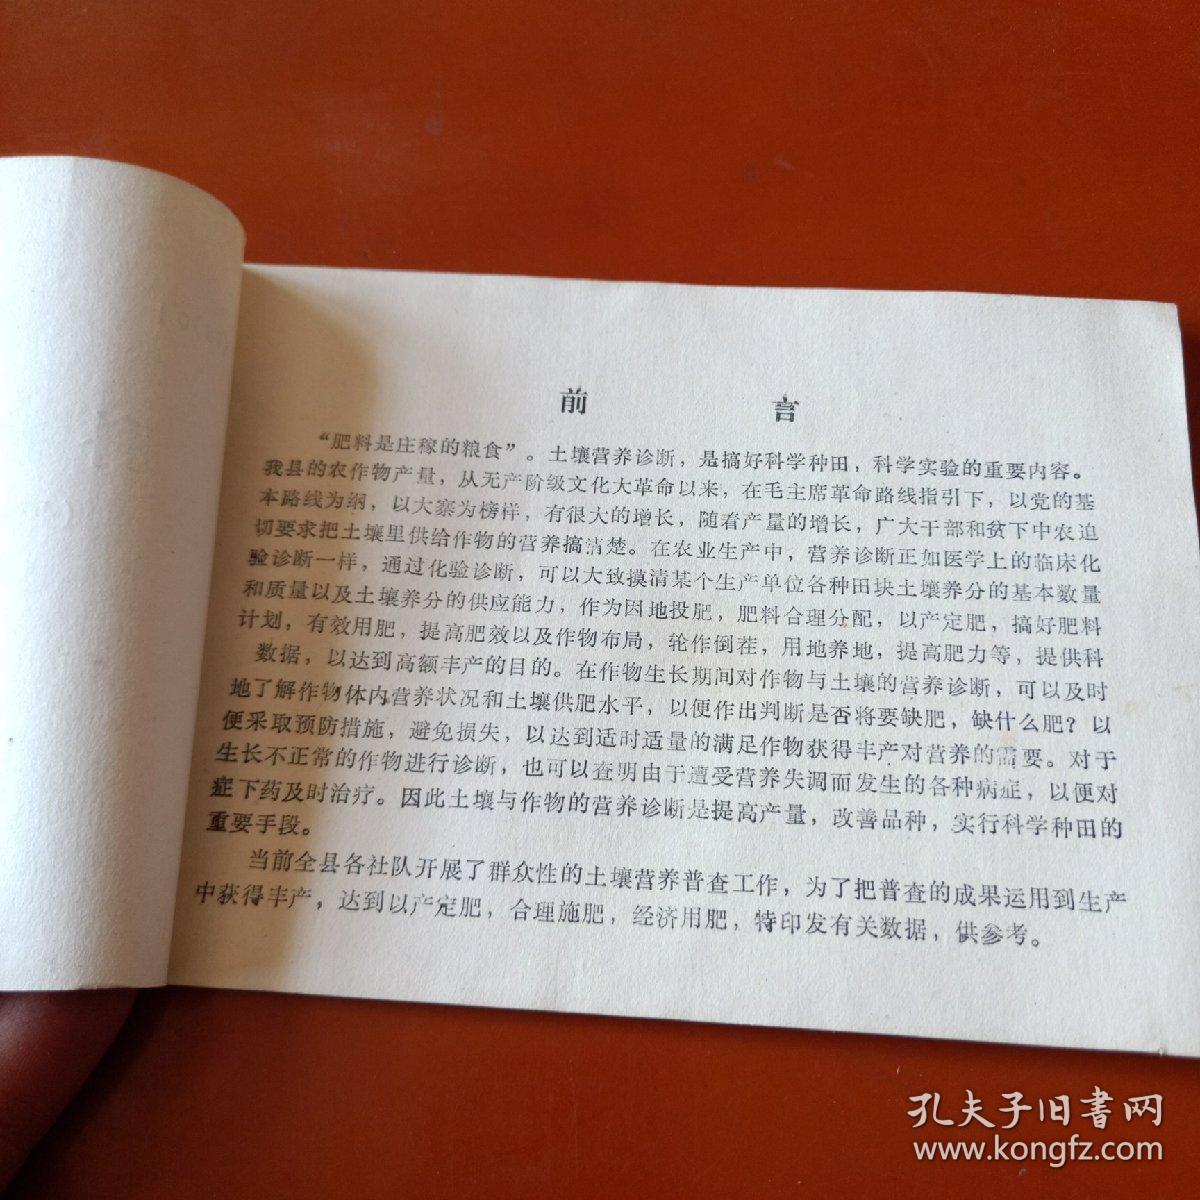 前言
“肥料是庄稼的粮食”。土壤营养诊断，是搞好科学种田，科学实验的重要内容。
我县的农作物产量，从无产阶级文化大革命以来，在毛主席革命路线指引下，以党的基
本路线为纲，以大寨为榜样，有很大的增长，随着产量的增长，广大干部和贫下中农迫
切要求把土壤里供给作物的营养搞清楚。在农业生产中，营养诊断正如医学上的临床化
验诊断一样，通过化验诊断，可以大致摸清某个生产单位各种田块土壤养分的基本数量
和质量以及土壤养分的供应能力，作为因地投肥，肥料合理分配，以产定肥，搞好肥料
计划，有效用肥，提高肥效以及作物布局，轮作倒茬，用地养地，提高肥力等，提供科
数据，以达到高额丰产的目的。在作物生长期间对作物与土壤的营养诊断，可以及时
地了解作物体内营养状况和土壤供肥水平，以便作出判断是否将要缺肥，缺什么肥？以
便采取预防措施，避免损失，以达到适时适量的满足作物获得丰产对营养的需要。对于
生长不正常的作物进行诊断，也可以查明由于遭受营养失调而发生的各种病症，以便对
症下药及时治疗。因此土壤与作物的营养诊断是提高产量，改善品种，实行科学种田的
重要手段。
当前全县各社队开展了群众性的土壤营养普查工作，为了把普查的成果运用到生产
中获得丰产，达到以产定肥，合理施肥，经济用肥，特印发有关数据，供参考。
孔夫子旧书网
www.kongfz.com